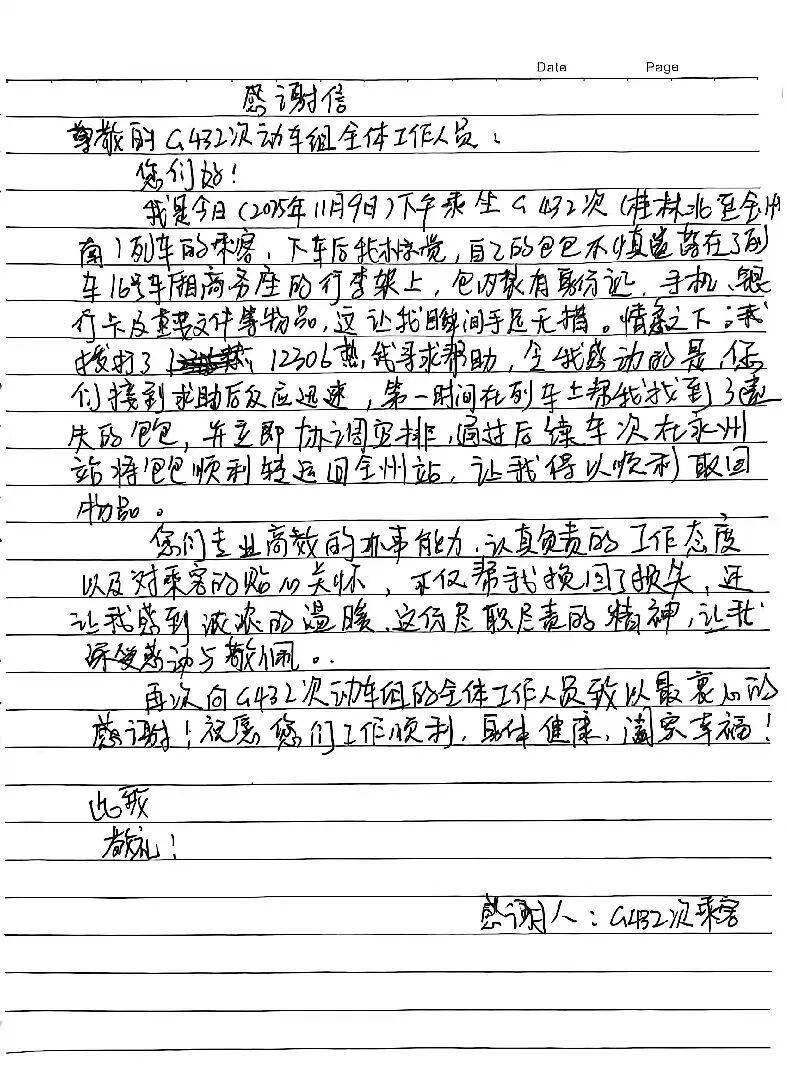 Date Page
感谢信
尊敬的G432次动车组全体工作人员：
您们好！
我是今日（2025年11月9日）下午乘坐G432次（桂林北至全州
南）列车的乘客，下车后我才惊觉，自己的包包不慎遗落在了列
车16号车厢商务座的行李架上，包内装有身份证、手机、银
行卡及重要文件等物品，这让我瞬间手足无措。情急之下，我
拨打了12306热线寻求帮助，令我感动的是，你
们接到求助后反应迅速，第一时间在列车上帮我找到了遗
失的包包，并立即协调安排，通过后续车次在永州
站将包包顺利转运回全州站，让我得以顺利取回
物品。
您们专业高效的办事能力、认真负责的工作态度
以及对乘客的贴心关怀，不仅帮我挽回了损失，还
让我感到浓浓的温暖，这份尽职尽责的精神，让我
深受感动与敬佩。
再次向G432次动车组的全体工作人员致以最衷心的
感谢！祝愿您们工作顺利，身体健康，阖家幸福！
此致
敬礼！
感谢人：G432次乘客